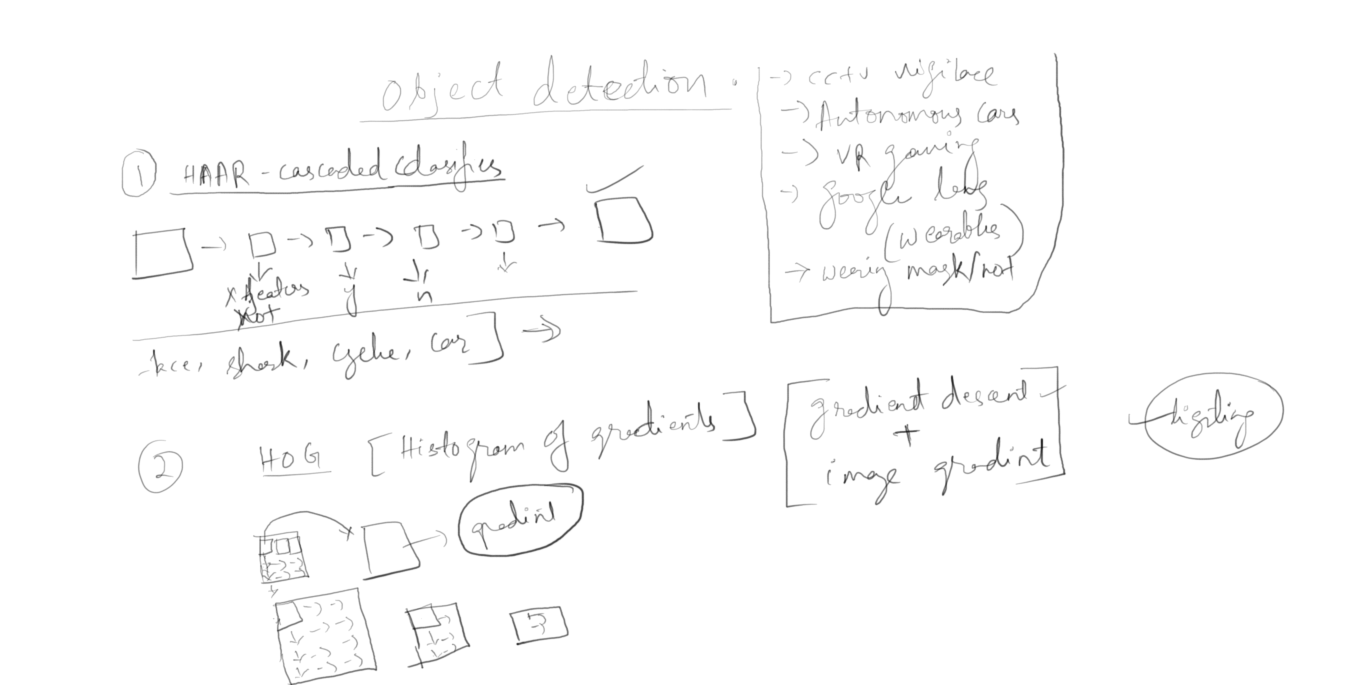 object detection.
-> cctv vigilace
-> Autonomous cars
-> VR gaming
-> google lens
(wearables)
-> wearing mask/not
① HAAR - cascaded classifies
-> -> -> -> ->
x featurs y n
not
face, shark, cycle, car] ->
② HOG [Histogram of gradients]
[gradient descent
+
image gradint]
gradint